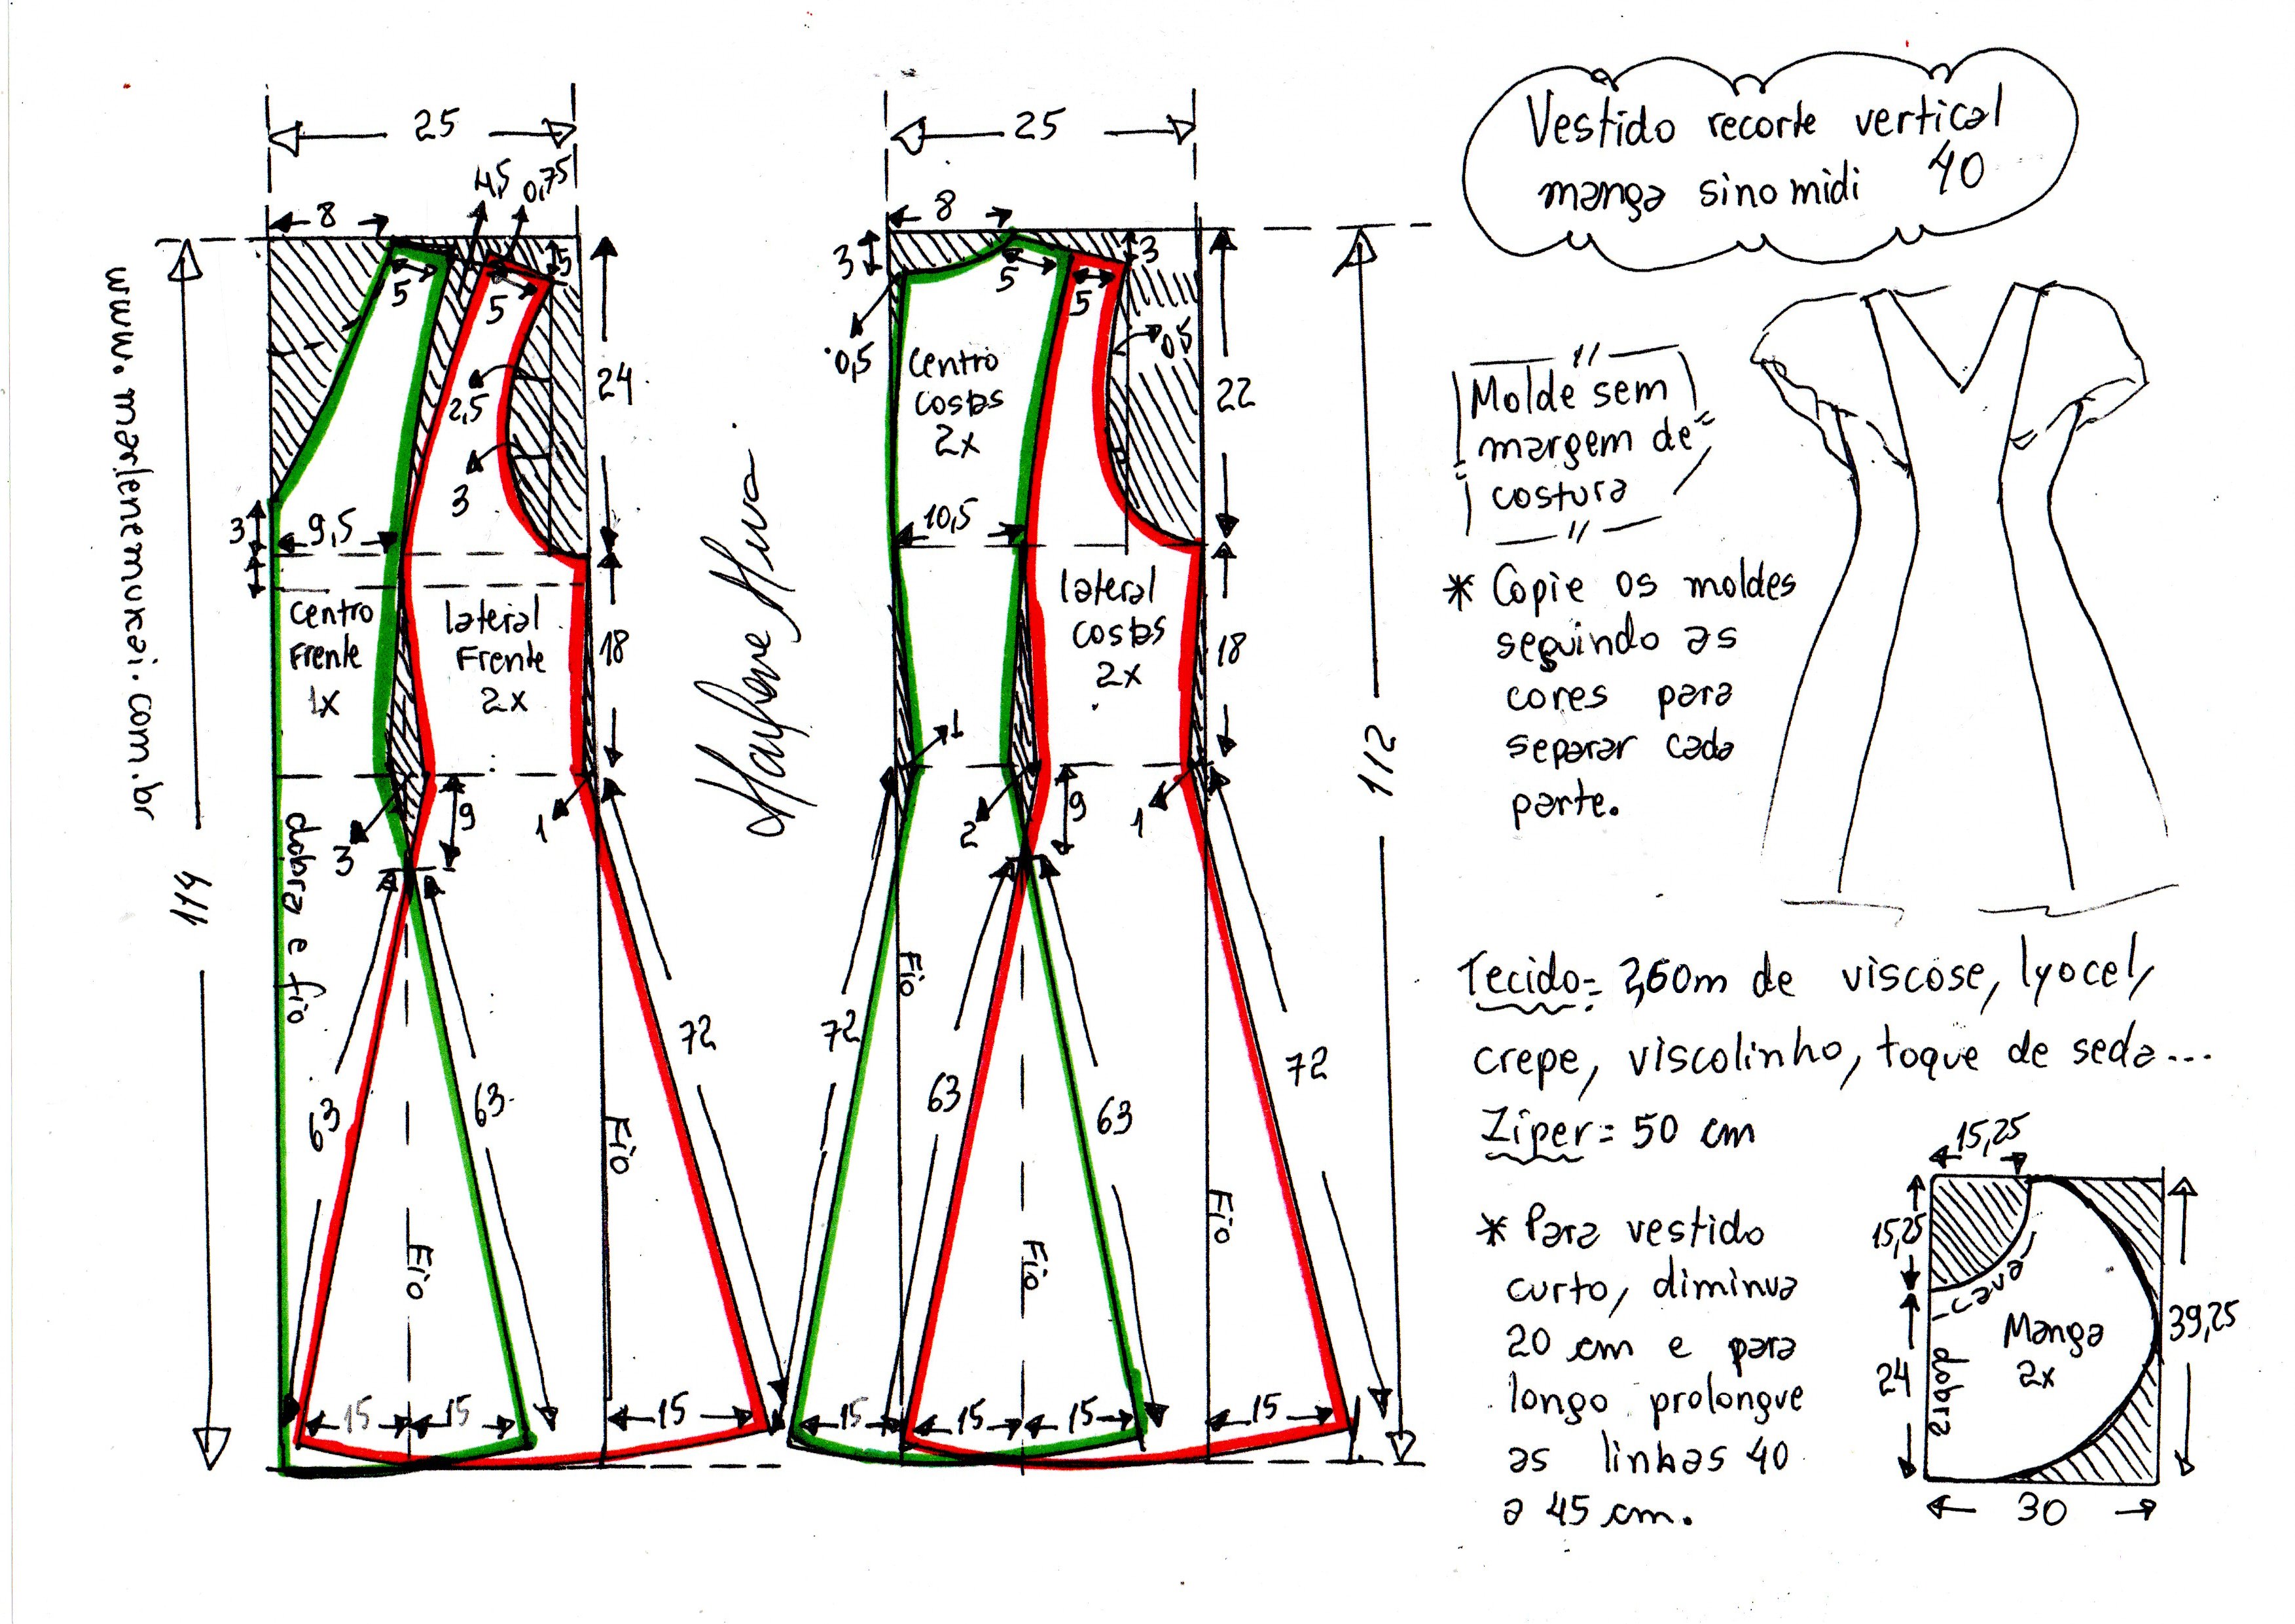 Vestido recorte vertical
manga sino midi 40
25
4,5 0,75
8
5
5
5
24
2,5
3
3
9,5
centro
Frente
1x
lateral
Frente
2x
18
3
9
1
dobra e fio
114
63
63
72
Fio
Fio
15
15
15
www.marlenemukai.com.br
25
8
3
3
5
5
0,5
0,5
centro
costas
2x
22
10,5
lateral
costas
2x
18
1
2
9
1
112
Fio
72
63
63
72
Fio
Fio
15
15
15
15
Molde sem
margem de
costura
* Copie os moldes
seguindo as
cores para
separar cada
parte.
Tecido= 2,60m de viscose, lyocel,
crepe, viscolinho, toque de seda...
Ziper= 50 cm
* Para vestido
curto, diminua
20 cm e para
longo prolongue
as linhas 40
a 45 cm.
15,25
15,25
cava
Manga
2x
39,25
24
dobra
30